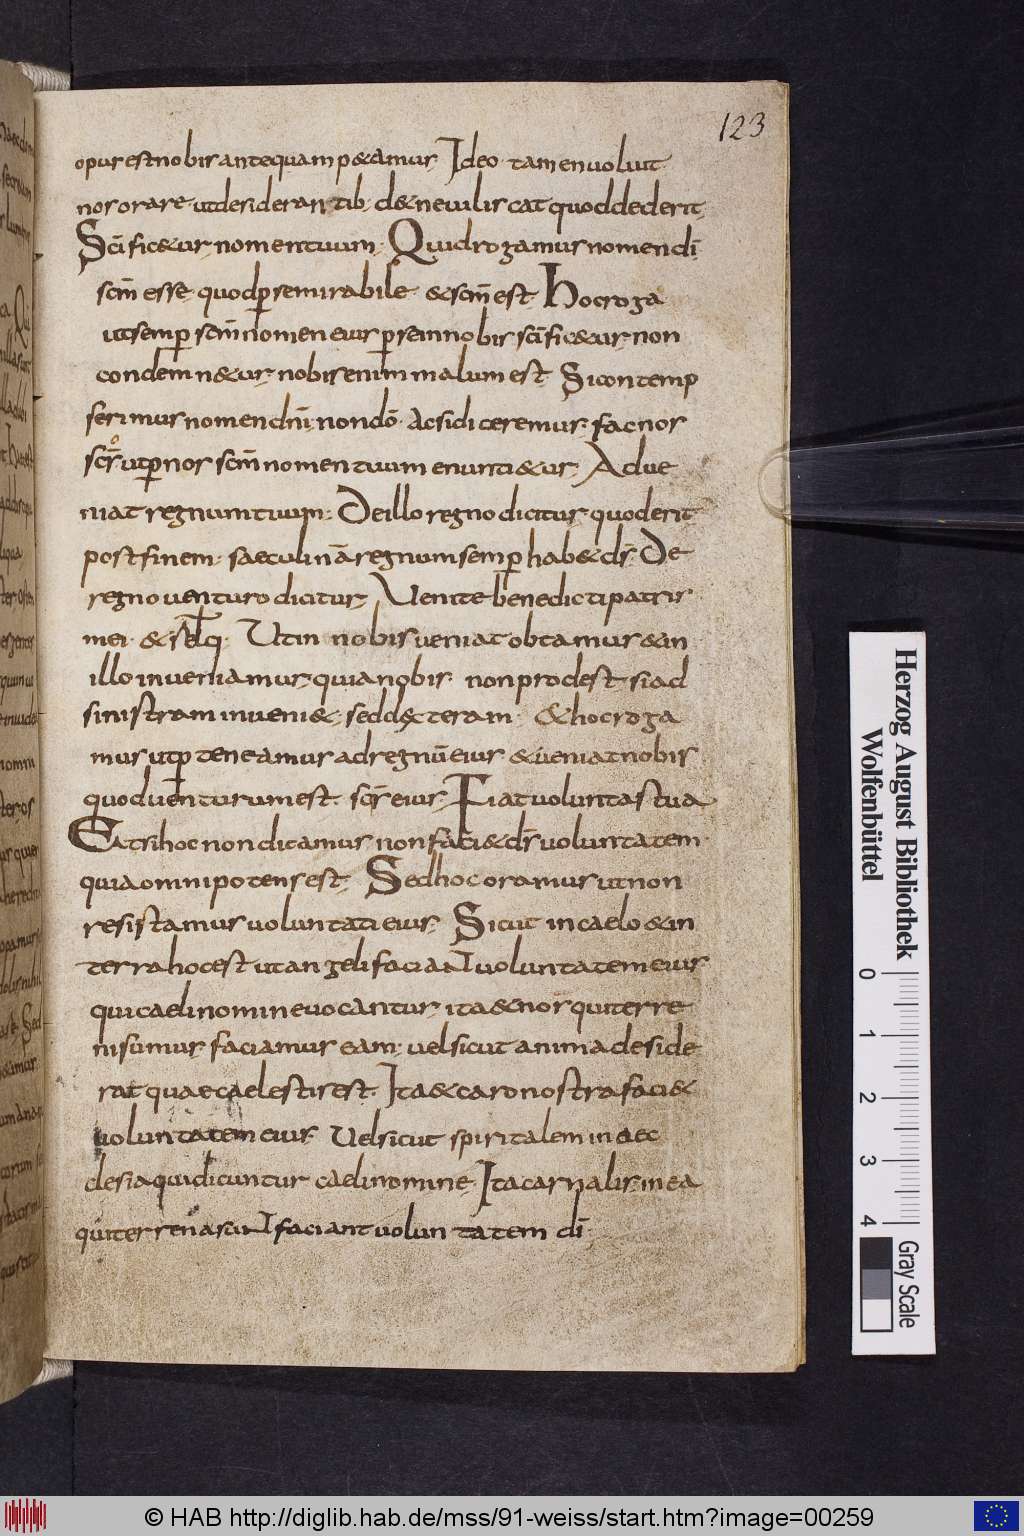 123
opus est nobis antequam p&amus. Ideo tamen uoluit
nos orare ut desiderantib; d& ne uiliscat quod dederit;
Scificetur nomen tuum. Quid rogamus nomen di
scm esse. quod semp semirabile & scm est. Hoc roga
ut semp scm nomen eius p se in nobis scific&ur non
condemn&ur. nobis enim malum est. Si contemp
serimus nomen dni non dō. Ac si diceremus. fac nos
scos ut p nos scm nomen tuum enunti&ur. Adue
niat regnum tuum. De illo regno dicitur. quod erit
post finem. saeculi nā regnum semp hab& ds. De
regno uenturo dicitur. Uenite benedicti patris
mei. & relq. Ut in nobis ueniat obtamus & in
illo inueniamur. quia nobis non prodest si ad
sinistram inueni&. sed dexteram. & hoc roga
mus ut pteneamus ad regnū eius & ueniat nobis
quod uenturum est. scis eius. Fiat uoluntas tua
Etsi hoc non dicamus non faci& ds uoluntatem
quia omnipotens est. Sed hoc oramus ut non
resistamus uoluntati eius. Sicut in caelo & in
terra hoc est ut angeli faciant uoluntatem eius
qui caeli nomine uocantur. ita & nos qui terre
ni sumus faciamus eam. uel sicut anima deside
rat quae caelestis est. Ita & caro nostra faci&
uoluntatem eius. Uel sicut spiritalem in aec
clesia qui dicuntur caeli nomine. Ita carnalis. in ea
qui terrena sunt faciant uoluntatem di.
Herzog August Bibliothek
Wolfenbüttel
0 1 2 3 4
Gray Scale
© HAB http://diglib.hab.de/mss/91-weiss/start.htm?image=00259